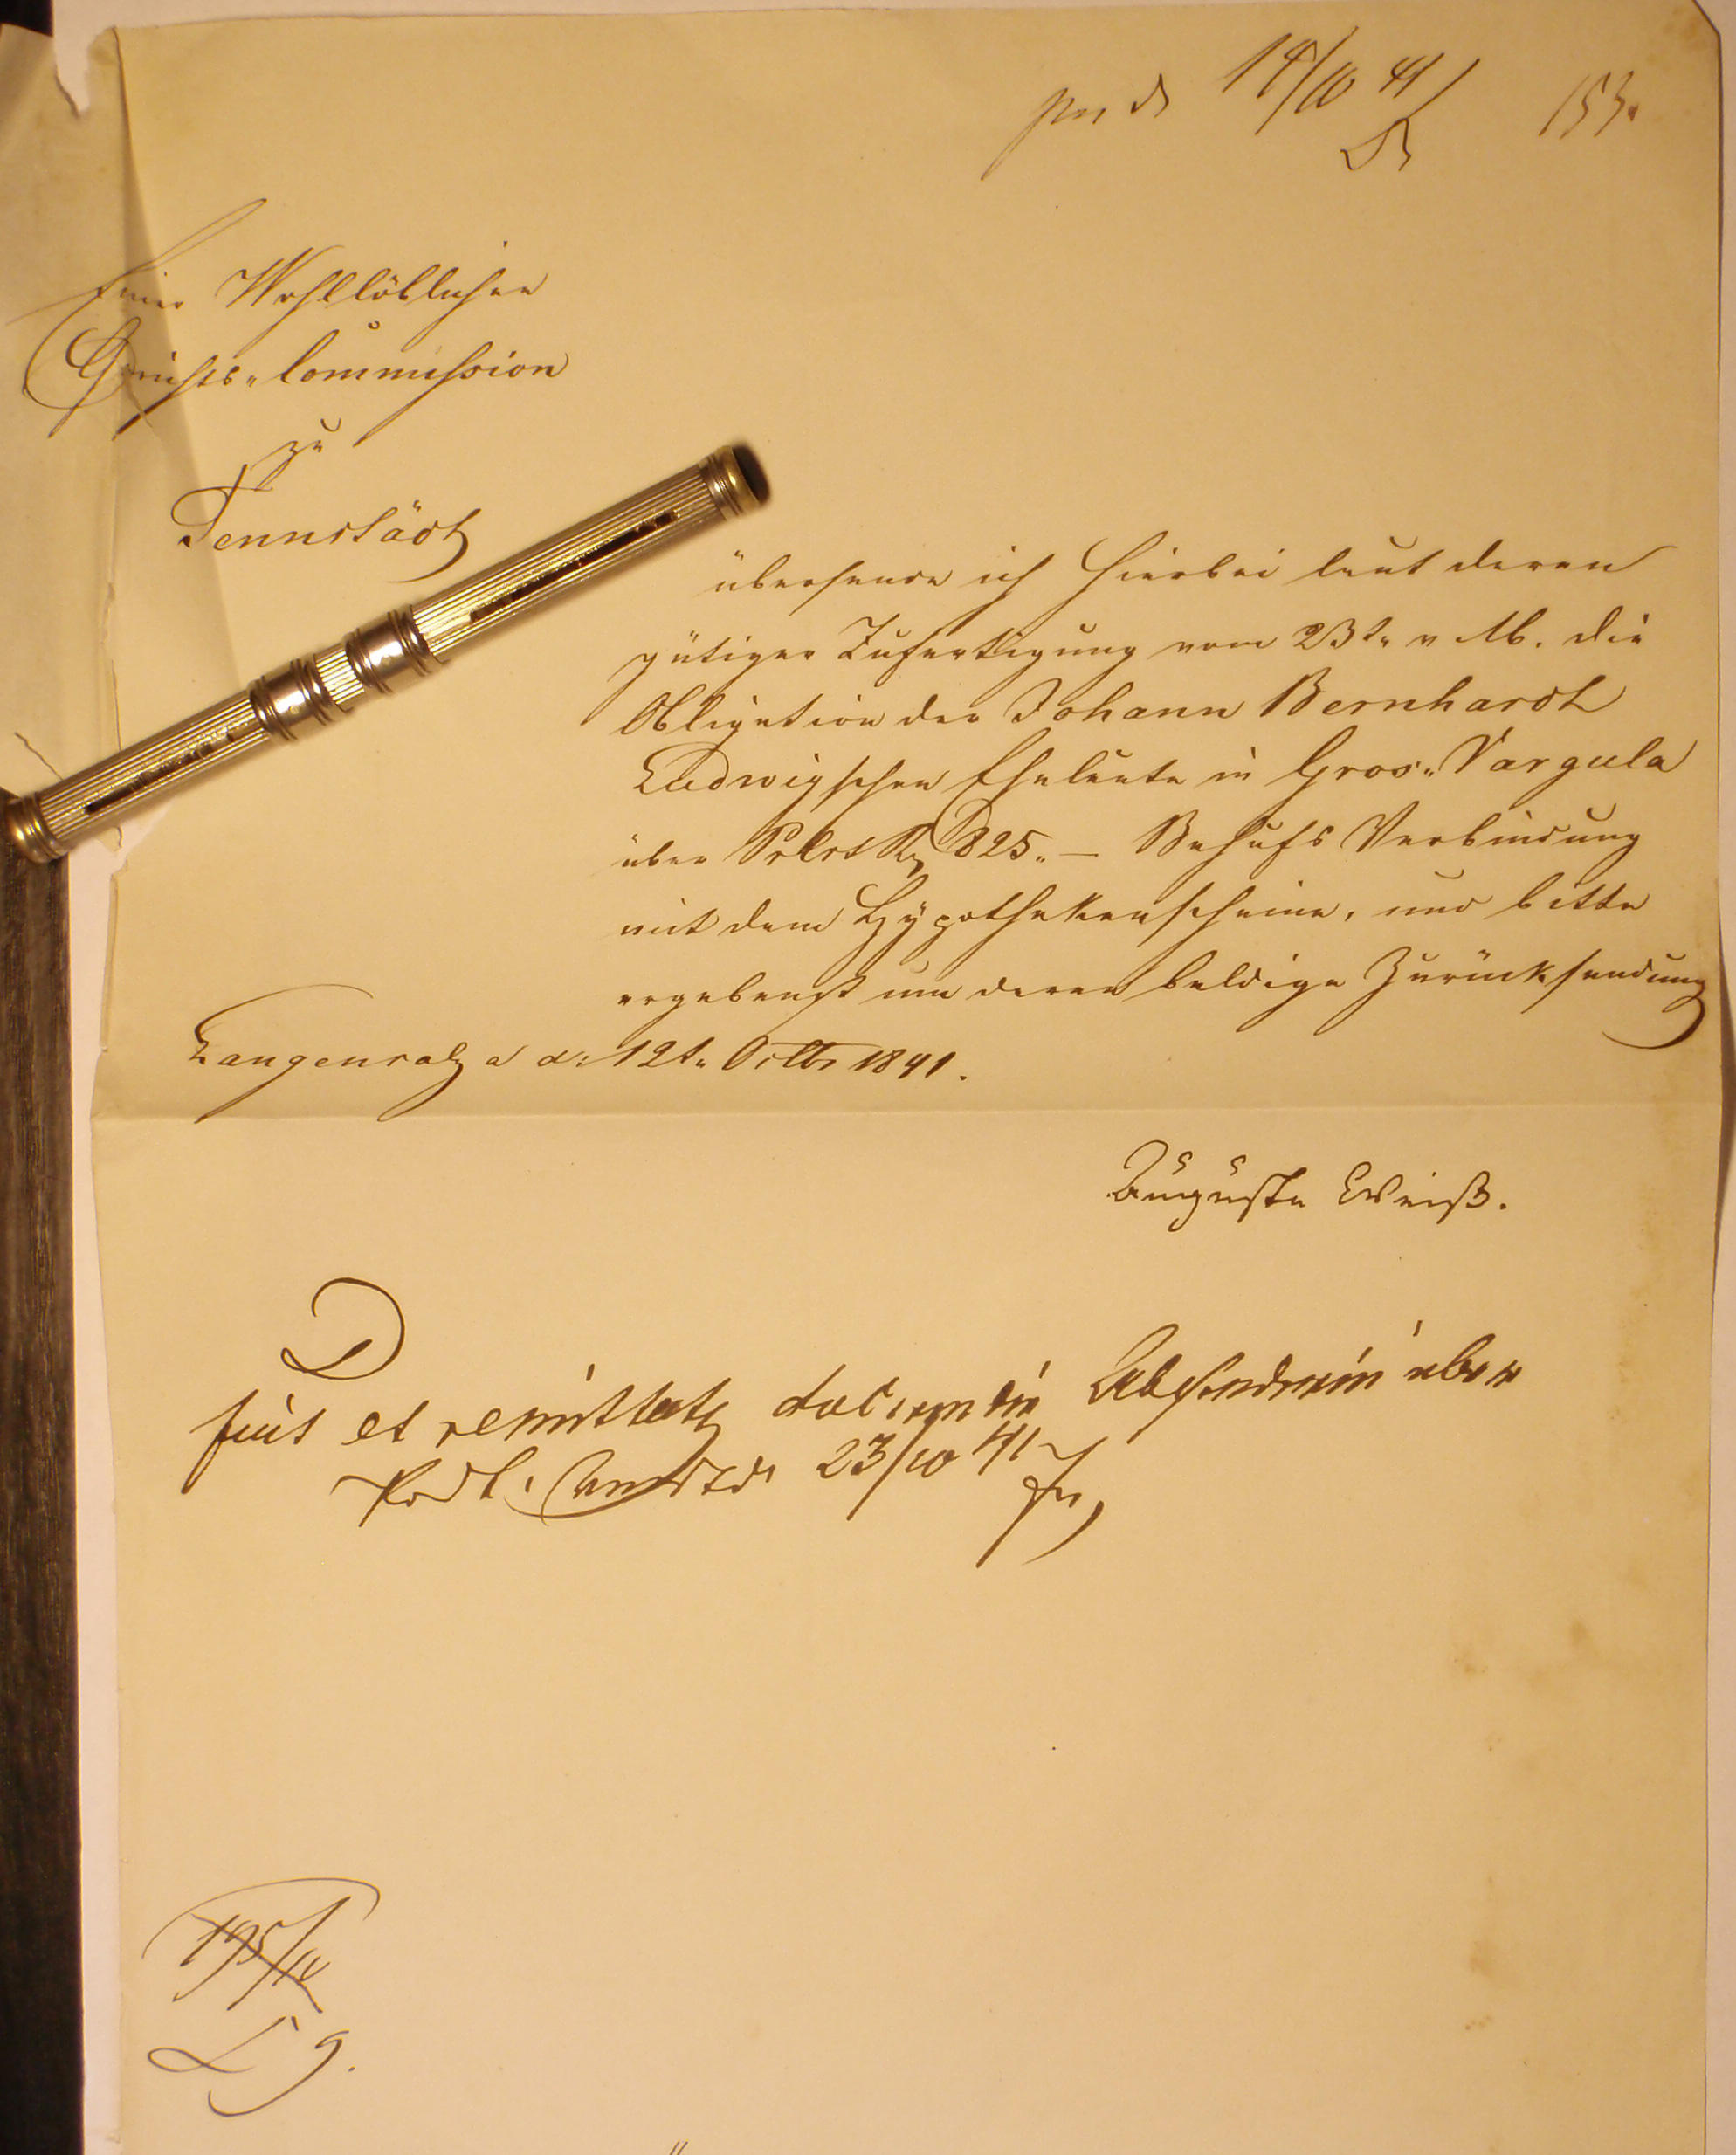 14/10 41
153.
Einer Wohllöblichen
Gerichts-Commission
zu
Tennstädt
übersende ich hierbei laut deren
gütiger Zufertigung vom 23t. v. Mts. die
Obligation der Johann Bernhardt
Ludwigschen Eheleute in Gros-Vargula
über 825.— Behufs Verbindung
mit dem Hypothekenscheine, und bitte
ergebenst um deren baldige Zurücksendung
Langensalza d: 12t. Octbr 1841.
Auguste Weiß.
fiat et remittatur
23/10 41